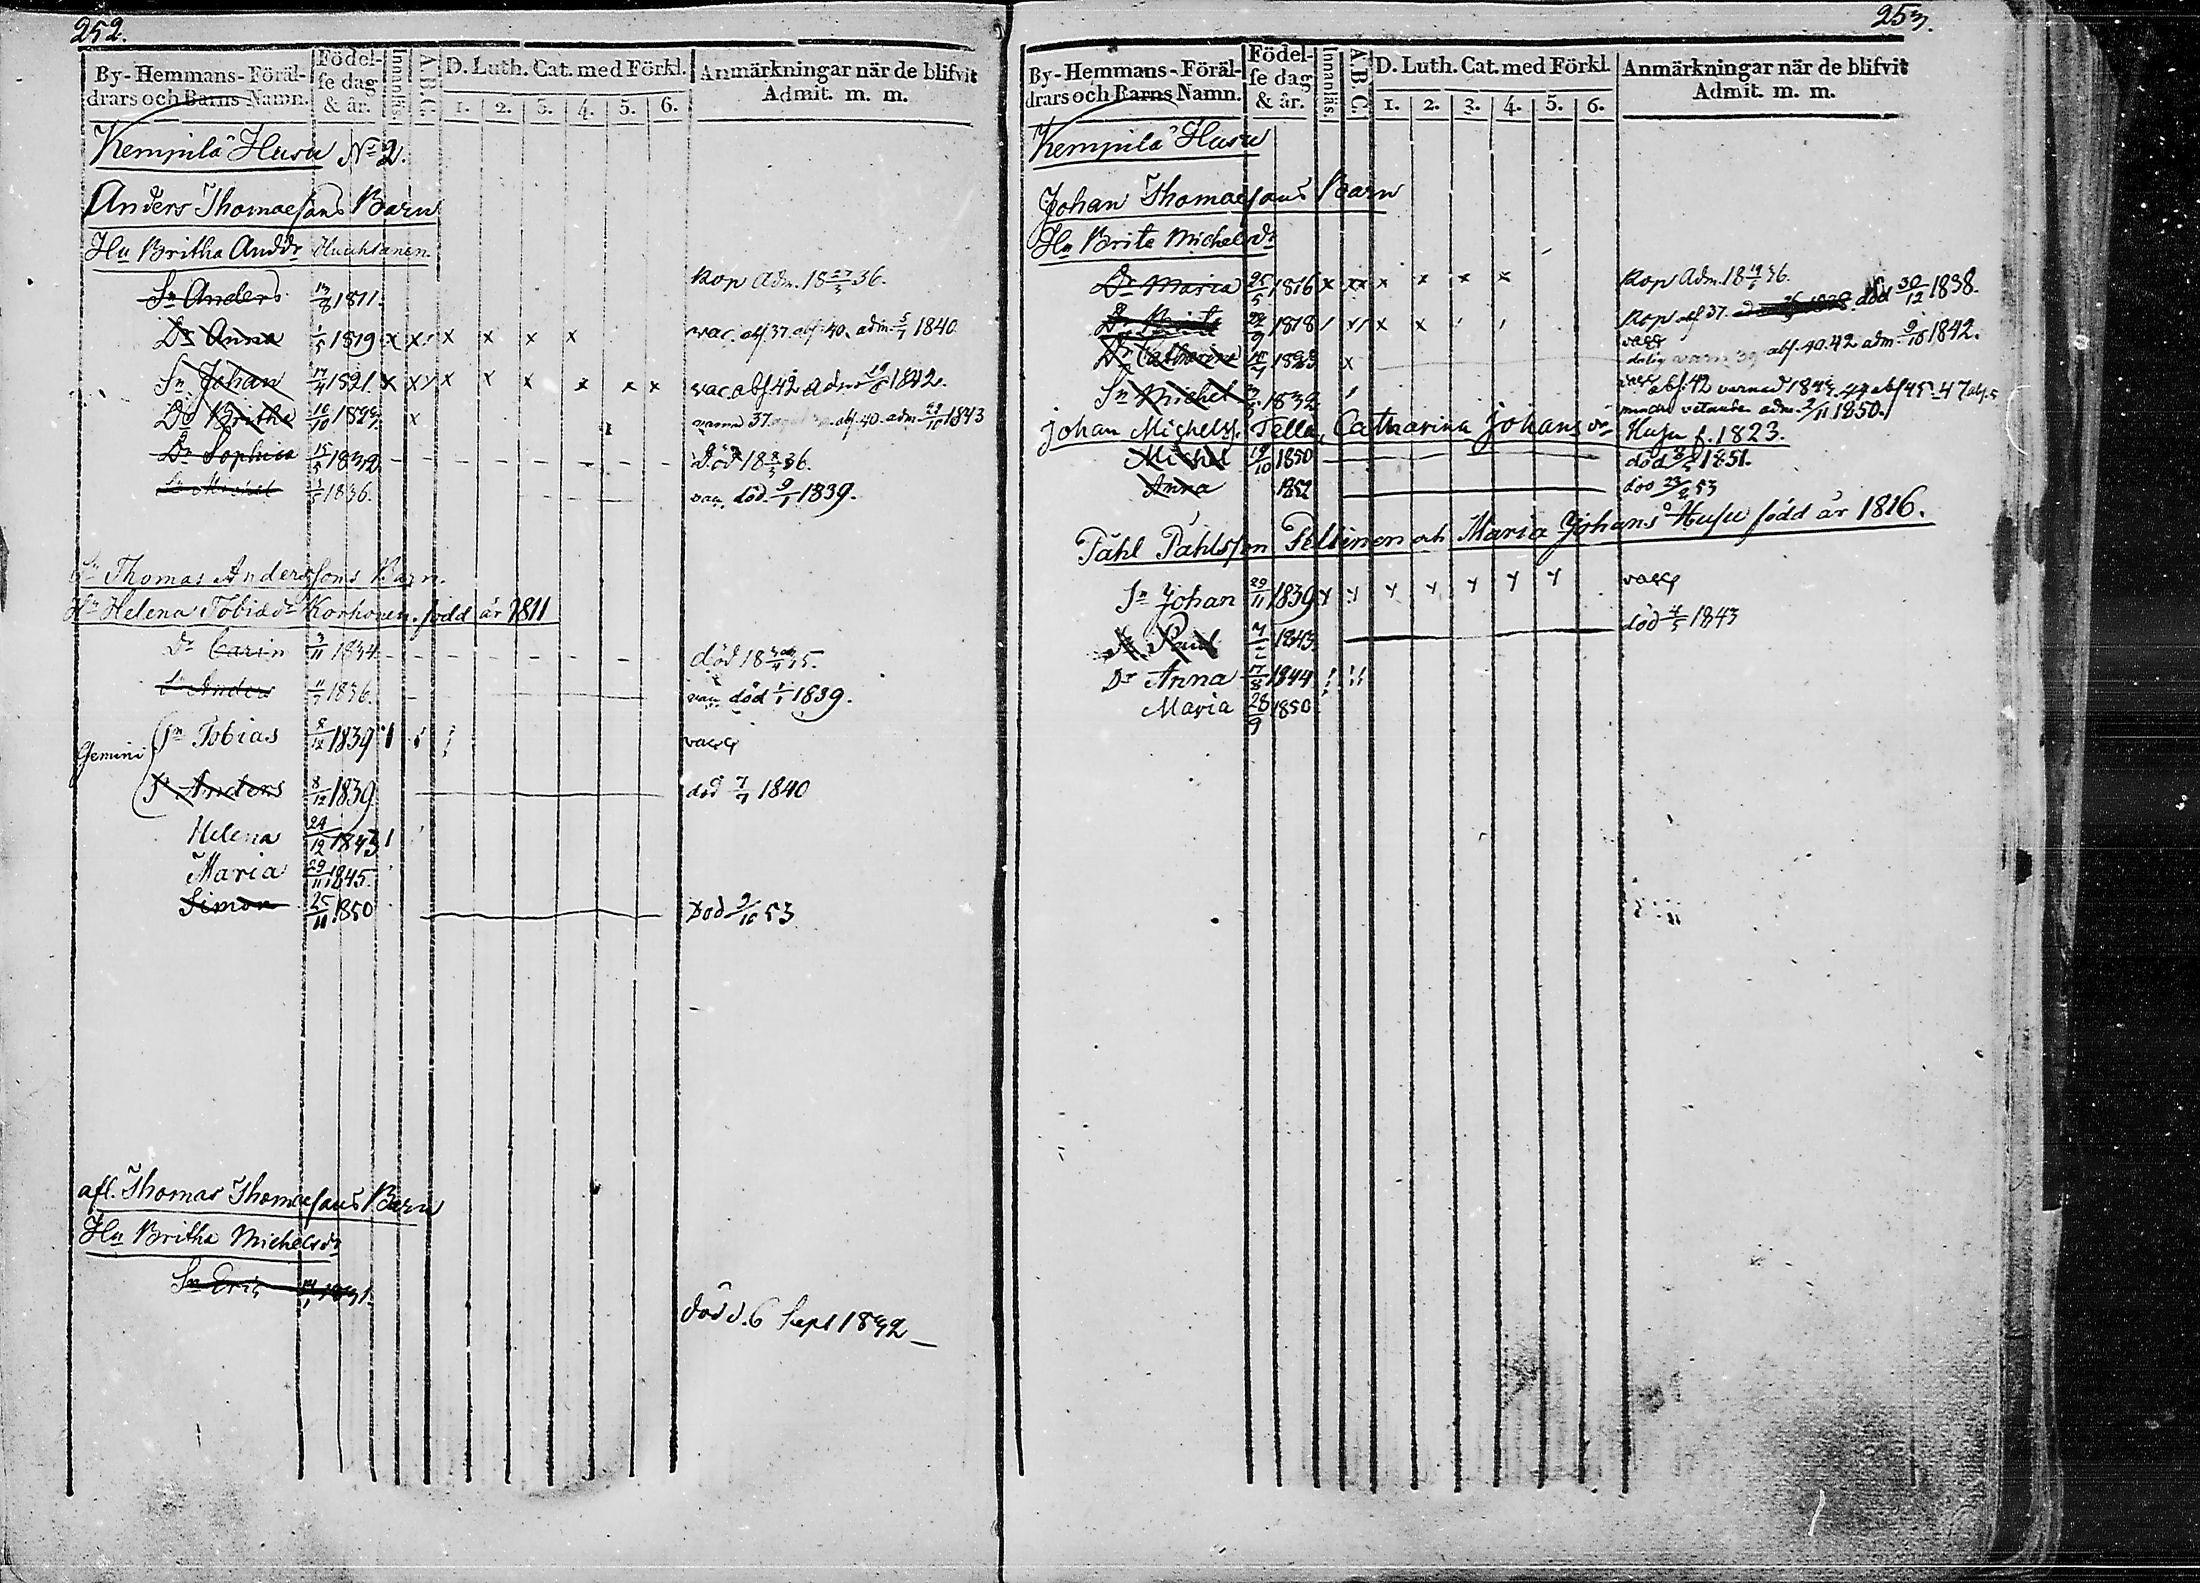 252.
By-Hemmans-Föräl-
drars och Barns Namn.
Födel-
se dag
& år.
Innanläs.
A.B.C.
D. Luth. Cat. med Förkl.
1. 2. 3. 4. 5. 6.
Anmärkningar när de blifvit
Admit. m. m.
Kempilä Husu No 2.
Anders Thomaessons Barn
Hu Britha Andsdr Huuhtanen.
Sn Anders 1811. Kop Adm. 18 27/3 36.
Dr Anna 1/5 1819 x x x x x x vac. abs. 37. abs. 40. adm. 5/7 1840
Sn Johan 17/4 1821. x x x x x x x x vac. abs. 42 adm 1842.
Dr Britha 10/10 x 37 abs. 40. adm. 1843
Dr Sophia 15/5 1832 död 18 36.
Sn Michel 1/5 1836. död 9/1 1839.
Sn Thomas Anderssons Barn.
Hu Helena Tobiaedr Korhonen. född år 1811
Dr Carin 3/11 1834 död 18 35.
Sn Anders 1836. död 1/1 1839.
Gemini
Sn Tobias 8/12 1839 vacc
Sn Anders 8/12 1839 död 7/7 1840
Helena 24/12 1843
Maria 29/11 1845.
Simon 25/11 1850 Död 9/10 53
afl. Thomas Thomaessons Barn
Hu Britha Michelsdr
Sn Eric 1831. död d. 6 Sept 1832
253.
By-Hemmans-Föräl-
drars och Barns Namn.
Födel-
se dag
& år.
Innanläs.
A.B.C.
D. Luth. Cat. med Förkl.
1. 2. 3. 4. 5. 6.
Anmärkningar när de blifvit
Admit. m. m.
Kempilä Husu
Johan Thomaessons Barn
Hu Brita Michelsdr
Dr Maria 25/5 1816 x xx x x x x Kop Adm. 18 36.
Dr Brita 1818 x x Kop abs 37. död 30/12 1838.
Dr Catharina 1823 x vacc abs. 40. 42 adm 9/10 1842.
Sn Michel 1832 abs. 42 varnad abs 45-47
adm. 2/11 1850.
Johan Michelss. Tella, Catharina Johansdr Husu f. 1823.
Michel 19/10 1850 död 8/5 1851.
Anna 1852 död 53
Påhl Påhlsson Peltinen och Maria Johans Husu född år 1816.
Sn Johan 29/11 1839 vacc
Sn Paul 1843 död 4/5 1843
Dr Anna 17/8 1844
Maria 28/9 1850